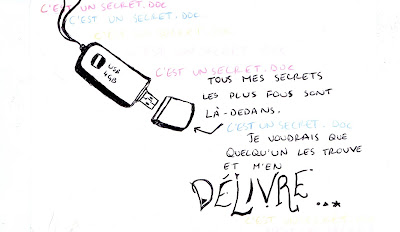 C'EST UN SECRET.DOC
C'EST UN SECRET.DOC
C'EST UN SECRET.DOC
C'EST UN SECRET.DOC
C'EST UN SECRET.DOC
USB
4GB
TOUS MES SECRETS
LES PLUS FOUS SONT
LÀ-DEDANS.
C'EST UN SECRET.DOC
JE VOUDRAIS QUE
QUELQU'UN LES TROUVE
ET M'EN
DÉLIVRE...
C'EST UN SECRET.DOC